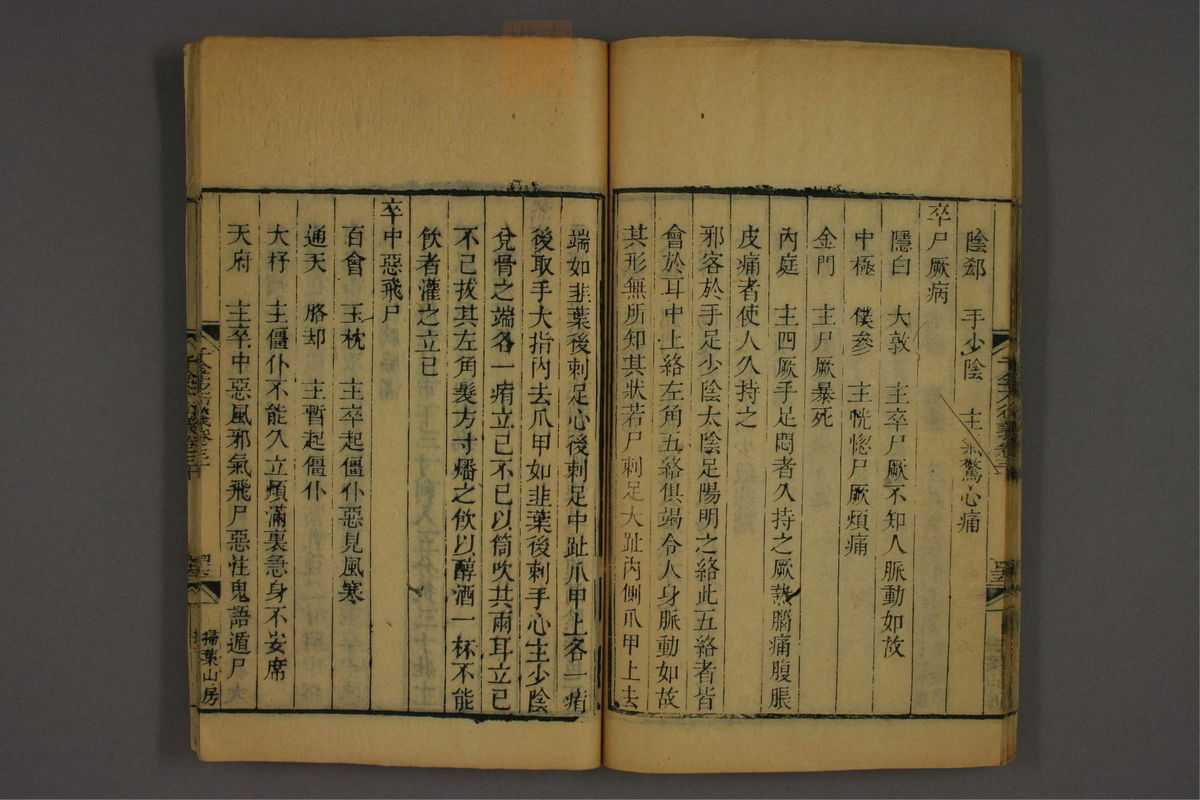 陰郄 手少陰 主氣驚心痛
卒尸厥病
隱白 大敦 主卒尸厥不知人脈動如故
中極 僕參 主恍惚尸厥煩痛
金門 主尸厥暴死
內庭 主四厥手足悶者久持之厥熱腦痛腹脹
皮痛者使人久持之
邪客於手足少陰太陰足陽明之絡此五絡者皆
會於耳中上絡左角五絡俱竭令人身脈動如故
其形無所知其狀若尸刺足大趾內側爪甲上去
端如韭葉後刺足心後刺足中趾爪甲上各一痏
後取手大指內去爪甲如韭葉後刺手心主少陰
兌骨之端各一痏立已不已以筒吹其兩耳立已
不已拔其左角髮方寸燔之飲以醇酒一杯不能
飲者灌之立已
卒中惡飛尸
百會 玉枕 主卒起僵仆惡見風寒
通天 胳却 主暫起僵仆
大杼 主僵仆不能久立煩滿裏急身不安席
天府 主卒中惡風邪氣飛尸惡疰鬼語遁尸
掃葉山房